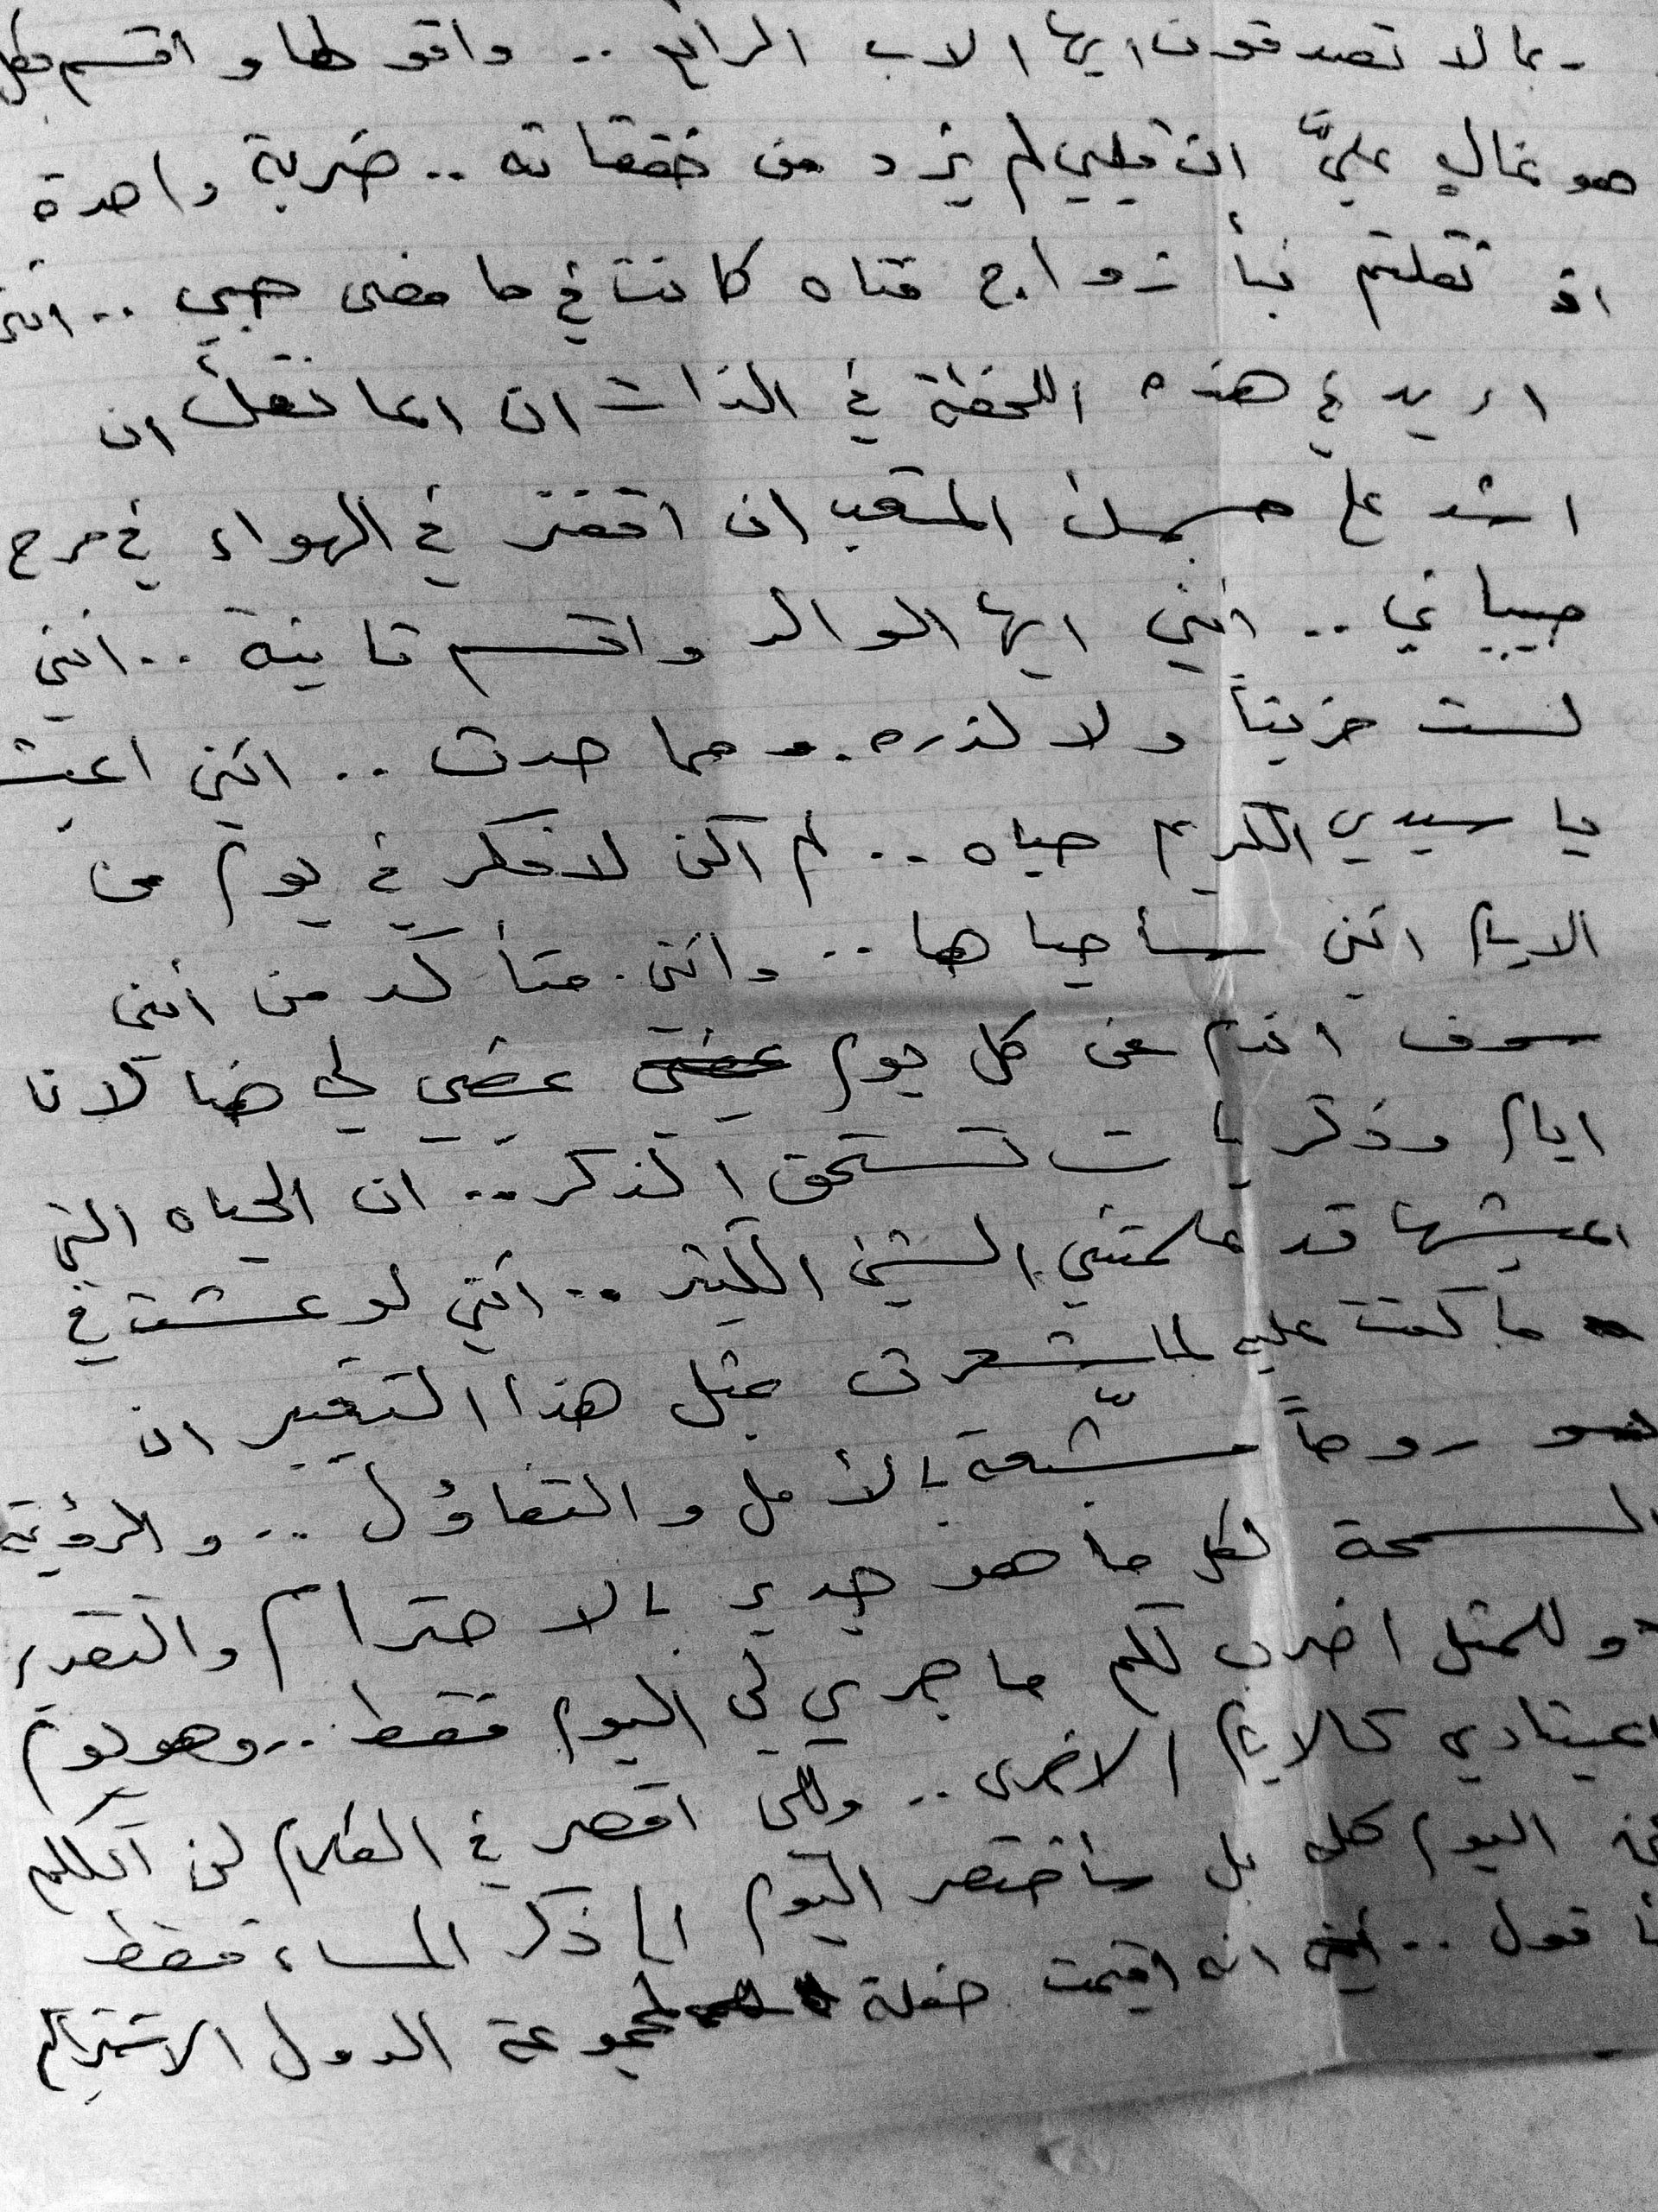 ربما لا تصدقون ايها الاب الرائع .. واقولها و اقسم بكل
هو غالٍ عليَّ ان قلبي لم يزد من خفقاته .. ضربة واحدة
اذ نقلتم نبأ زواج فتاه كانت في ما مضى حبي .. انني
اريد في هذه اللحظة في الذات ان اعانقك ان
اشد على جسمك المتعب ان اقفز في الهواء في مرح
صبياني .. انني ايها الوالد واقسم ثانية .. انني
لست حزيناً ولا لذره مما حدث .. انني اعيش
يا سيدي الكريم حياه .. لم اكن لافكر في يوم من
الايام انني سأحياها .. وانني متأكد من أنني
سوف اندم عن كل يوم يمضي لي هنا لانا
ايام وذكريات تستحق الذكر .. ان الحياه التي
اعيشها قد علمتني الشئ الكثير .. انني لو عشت في
ما كنت عليه لما شعرت بمثل هذا التغيير ان
هو روحاً مشّبعة بالأمل والتفاؤل .. والرؤية
السمحة لكل ما هو جدير بالاحترام والتقدير
وللمثل اضرب لكم ما جرى لي اليوم فقط .. وهو يوم
اعتيادي كالايام الاخرى .. ولكي اقصر في الكلام لن اكلمكم
عن اليوم كله بل سأختصر اليوم الى ذكر المساء فقط
فأقول .. انه اقيمت حفلة لمجموعة الدول الاشتراكيه